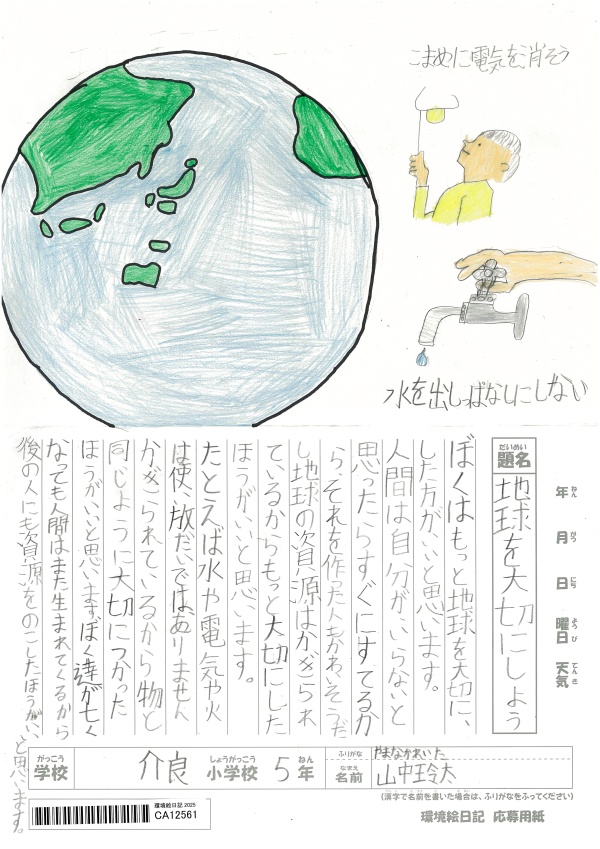 こまめに電気を消そう
水を出しっぱなしにしない
だいめい
題名
地球を大切にしよう
年 ねん
月 がつ
日 にち
曜日 ようび
天気 てんき
ぼくはもっと地球を大切に、
した方がいいと思います。
人間は自分が、いらないと
思ったらすぐにすてるか
ら、それを作った人もかわいそうだ
し地球の資源はかぎられ
ているからもっと大切にした
ほうがいいと思います。
たとえば水や電気や火
は使い放だいではありません
かぎられているから物と
同じように大切につかった
ほうがいいと思います。ぼく達が亡く
なっても人間はまた生まれてくるから
後の人にも資源をのこしたほうがいいと思います。
がっこう
学校
介良
しょうがっこう
小学校
5
ねん
年
ふりがな
やまなかれいた
なまえ
名前
山中玲太
(漢字で名前を書いた場合は、ふりがなをふってください)
環境絵日記 2025
CA12561
環境絵日記 応募用紙